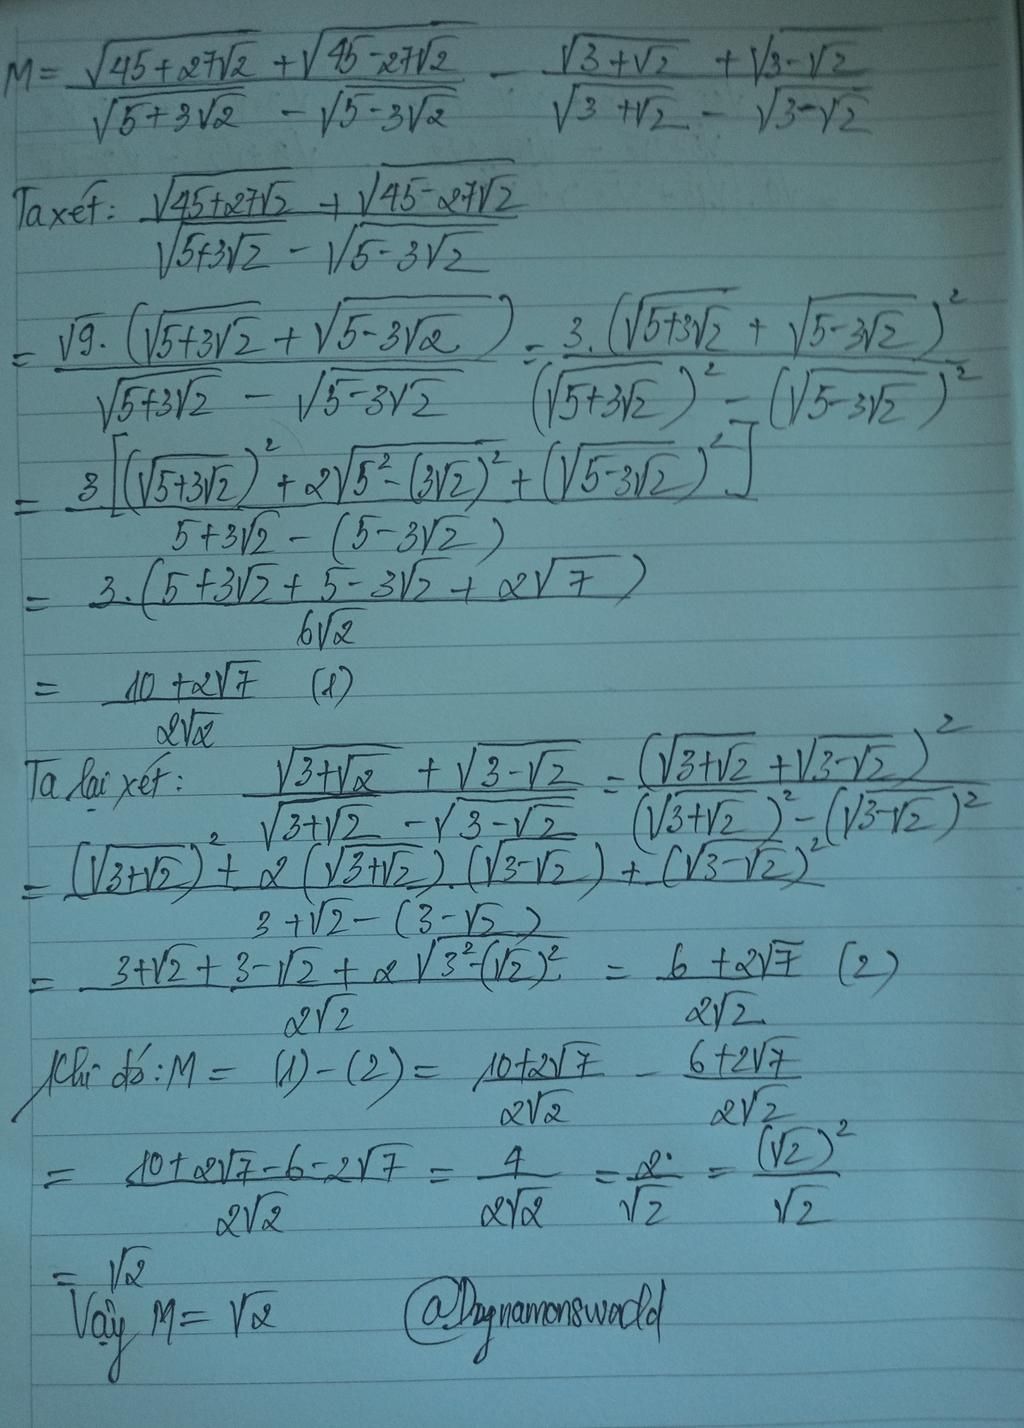 M = (√(45+27√2) + √(45-27√2)) / (√(5+3√2) - √(5-3√2)) - (√(3+√2) + √(3-√2)) / (√(3+√2) - √(3-√2))
Ta xét: (√(45+27√2) + √(45-27√2)) / (√(5+3√2) - √(5-3√2))
= √9.(√(5+3√2) + √(5-3√2)) / (√(5+3√2) - √(5-3√2)) = 3.(√(5+3√2) + √(5-3√2))² / ((√(5+3√2))² - (√(5-3√2))²)
= 3[(√(5+3√2))² + 2√(5²-(3√2)²) + (√(5-3√2))²] / (5+3√2-(5-3√2))
= 3.(5+3√2+5-3√2+2√7) / 6√2
= (10+2√7) / 2√2 (1)
Ta lại xét: (√(3+√2) + √(3-√2)) / (√(3+√2) - √(3-√2)) = (√(3+√2) + √(3-√2))² / ((√(3+√2))² - (√(3-√2))²)
= ((√(3+√2))² + 2(√(3+√2)).(√(3-√2)) + (√(3-√2))²) / (3+√2-(3-√2))
= (3+√2+3-√2+2√(3²-(√2)²)) / 2√2 = (6+2√7) / 2√2 (2)
Khi đó: M = (1)-(2) = (10+2√7) / 2√2 - (6+2√7) / 2√2
= (10+2√7-6-2√7) / 2√2 = 4 / 2√2 = 2 / √2 = (√2)² / √2
= √2
Vậy M = √2 @Dognamonsworld